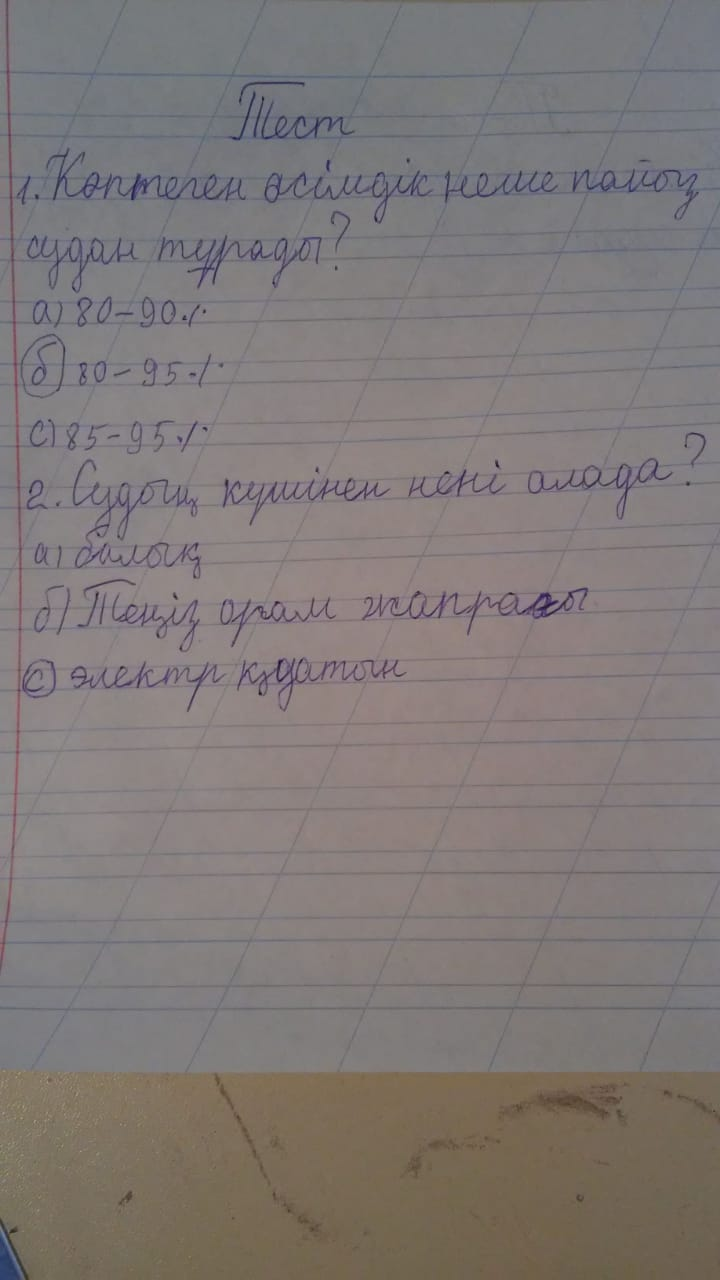 Тест
1. Көптеген өсімдік неше пайыз
судан тұрады?
а) 80-90%
б) 80-95%
с) 85-95%
2. Судың күшінен нені алада?
а) балық
б) Теңіз орам жапрағы
с) электр қуатын